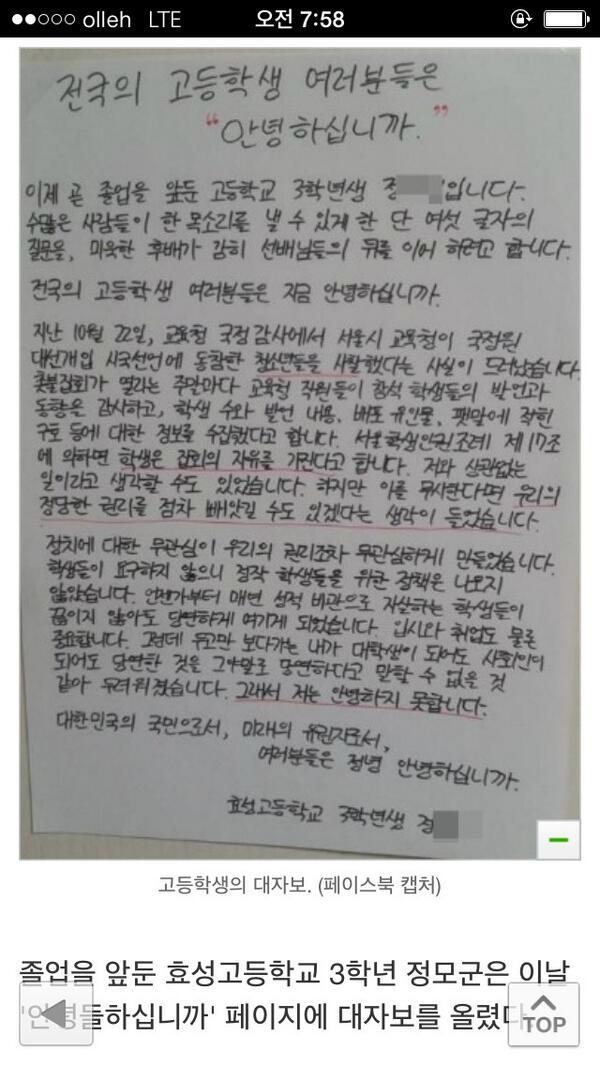 olleh LTE 오전 7:58
전국의 고등학생 여러분들은
“안녕하십니까.”
이제 곧 졸업을 앞둔 고등학교 3학년생 정 입니다.
수많은 사람들이 한 목소리를 낼 수 있게 한 단 여섯 글자의
질문을, 미욱한 후배가 감히 선배님들의 뒤를 이어 하려고 합니다.
전국의 고등학생 여러분들은 지금 안녕하십니까.
지난 10월 22일, 교육청 국정감사에서 서울시 교육청이 국정원
대선개입 시국선언에 동참한 청소년들을 사찰했다는 사실이 드러났습니다.
촛불집회가 열리는 주말마다 교육청 직원들이 참석 학생들의 발언과
동향을 감시하고, 학생 수와 발언 내용, 배포 유인물, 팻말에 적힌
구호 등에 대한 정보를 수집했다고 합니다. 서울학생인권조례 제17조
에 의하면 학생은 집회의 자유를 가진다고 합니다. 저와 상관없는
일이라고 생각할 수도 있었습니다. 하지만 이를 무시한다면 우리의
정당한 권리를 점차 빼앗길 수도 있겠다는 생각이 들었습니다.
정치에 대한 무관심이 우리의 권리조차 무관심하게 만들었습니다.
학생들이 요구하지 않으니 정작 학생들을 위한 정책은 나오지
않았습니다. 언젠가부터 매년 성적 비관으로 자살하는 학생들이
끊이지 않아도 당연하게 여기게 되었습니다. 입시와 취업도 물론
중요합니다. 그런데 두고만 보다가는 내가 대학생이 되어도 사회인이
되어도 당연한 것을 그야말로 당연하다고 말할 수 없을 것
같아 두려워졌습니다. 그래서 저는 안녕하지 못합니다.
대한민국의 국민으로서, 미래의 유권자로서,
여러분들은 정녕 안녕하십니까.
효성고등학교 3학년생 정
고등학생의 대자보. (페이스북 캡처)
졸업을 앞둔 효성고등학교 3학년 정모군은 이날
'안녕들하십니까' 페이지에 대자보를 올렸다
TOP